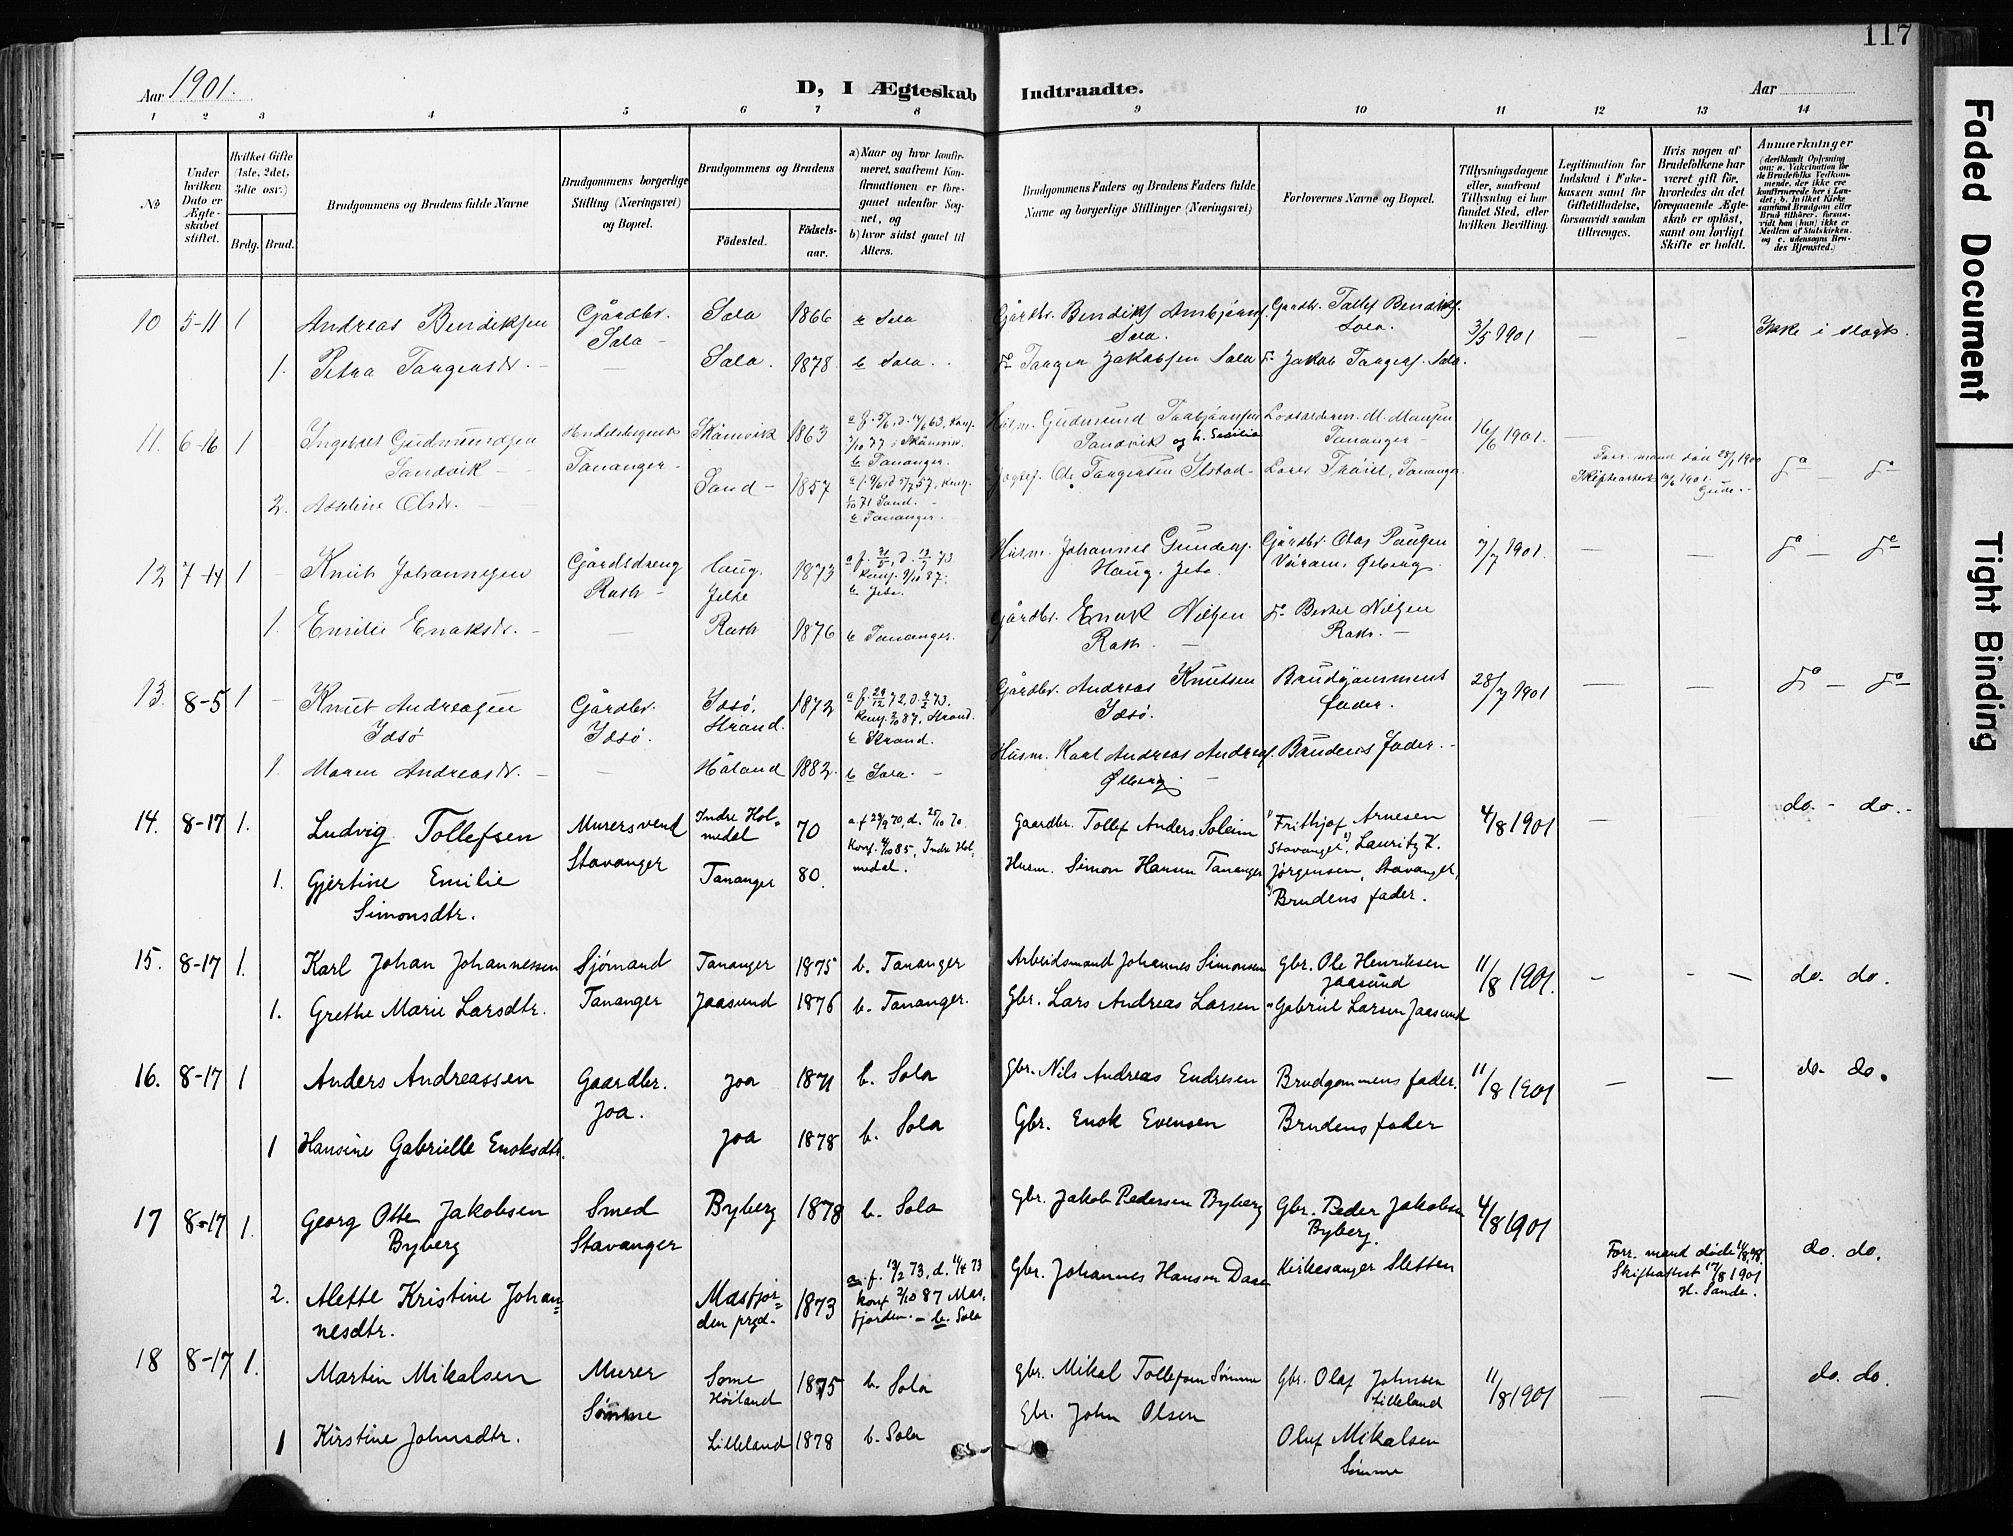 117
Faded Document
Tight Binding
Aar 1901.
D, I Ægteskab Indtraadte.
Aar
1 2 3 4 5 6 7 8 9 10 11 12 13 14
No
Under hvilken Dato er Ægteskabet stiftet.
Hvilket Gifte (1ste, 2det, 3die osv.)
Brdg. Brud.
Brudgommens og Brudens fulde Navne
Brudgommens borgerlige Stilling (Næringsvei) og Bopæl.
Brudgommens og Brudens
Fødested.
Fødselsaar.
a) Naar og hvor konfirmeret, saafremt Konfirmationen er foregaaet udenfor Sognet, og
b) hvor sidst gaaet til Alters.
Brudgommens Faders og Brudens Faders fulde Navne og borgerlige Stillinger (Næringsvei)
Forlovernes Navne og Bopæl.
Tillysningsdagene eller, saafremt Tillysning ei har fundet Sted, efter hvilken Bevilling.
Legitimation for Indskud i Enkekassen samt for Giftetilladelse, forsaavidt saadan tiltrænges.
Hvis nogen af Brudefolkene har været gift før, hvorledes da det foregaaende Ægteskab er opløst, samt om lovligt Skifte er holdt.
Anmærkninger
(deriblandt Oplysning om: a. Vakcination for de Brudefolks Vedkommende, der ikke ere konfirmerede her i Landet; b. hvilket Kirkesamfund Brudgom eller Brud tilhører, forsaavidt han (hun) ikke er Medlem af Statskirken, og c. udensogns Brudes Hjemsted.)
10 5-11 1 Andreas Bendiksen Gårdbr. Sola 1866 b Sola Gårdbr. Bendik Gårdbr. Tollef Bendiks. 3/5 1901 — — Ikke i slægt.
Sola — Sola. Sola.
1. Petra Tangensdr. — — Sola. 1878 b Sola. Do Tangen Jakobsen Sola Do Jakob Tangens. Sola.
11. 6-16 1 Ingebret Gudmundsen Tananger — Skånevik 1863 Husm. Gudmund 16/6 1901. —
Sandvik — Sandvik Tananger —
b Tananger.
2. Olsdr. — Sand — 1857 Ole Tangensen Tananger. Do — Do
b Tananger.
12 7-14 1 Knut Johannesen Gårdsdreng Haug, 1873 Husm. Johannes Gunders. Gårdbr. 7/7 1901. — — Do — Do
Rath — Jelse Haug. Jelse.
1. Emilie Enoksdr. — — Rath 1876 b Tananger. Gårdbr. Enok Nilsen Do Nilsen
Rath. — Rath. —
13. 8-5 1 Knut Andreasen Gårdbr. Idsø, 1872 Gårdbr. Andreas Knutsen Brudgommens 28/7 1901 — — Do — Do
Idsø Idsø. Strand. b Strand. Idsø. fader.
1. Maren Andreasdr. — — Håland 1882. b Sola. — Husm. Karl Andreas Andreas. Brudens fader. —
Ølberg. —
14. 8-17 1. Ludvig Tollefsen Murersvend Indre Holmedal 70 a. f 29/9 70, d. 25/10 70 Gaardbr. Tollef Anders. Soleim 1) Frithjof Arnesen 4/8 1901 — — do. - do. -
Stavanger Konf. 4/10 85, Indre Holmedal. Stavanger, 2) Lauritz K.
1. Gjertine Emilie Tananger 80. Husm. Simon Hansen Tananger Jørgensen, Stavanger,
Simonsdtr. 3) Brudens fader.
15. 8-17 1. Karl Johan Johannessen Sjømand Tananger 1875 b. Tananger Arbeidsmand Johannes Simonsen Gbr. Ole Henriksen 11/8 1901. — — — do. do.
Jaasund
1. Grethe Marie Larsdtr. Tananger Jaasund 1876 b. Tananger. Gbr. Lars Andreas Larsen " Gabriel Larsen Jaasund
16. 8-17 1 Anders Andreassen Gaardbr. Joa 1871 b. Sola Gbr. Nils Andreas Endresen Brudgommens fader. 11/8 1901 — — do. do.
Joa.
1 Hansine Gabrielle Enoksdtr. Joa 1878 b. Sola Gbr. Enok Evensen Brudens fader
17 8-17 1. Georg Otto Jakobsen Smed Byberg 1878 b. Sola Gbr. Jakob Pedersen Byberg Gbr. Peder Jakobsen 4/8 1901
Byberg Stavanger Byberg.
2. Alette Kristine Johannesdtr. Masfjorden prgd. 1873 a. f. 19/2 73, d. 14/4 73 konf 2/10 87 Masfjorden. — b. Sola Gbr. Johannes Hansen Daae Kirkesanger Sletten Forr. mand døde 11/8 98. Skifteattest 17/8 1901 H. Sande. do. do.
18 8-17 1. Martin Mikalsen Murer Sømme 1875 b. Sola Gbr. Mikal Tollefsen Sømme Gbr. Olaf Johnsen 11/8 1901 — — do. do.
Sømme Høiland Lilleland
1 Kirstine Johnsdtr. Lilleland 1878 b. Sola Gbr. John Olsen Oluf Mikalsen
Sømme